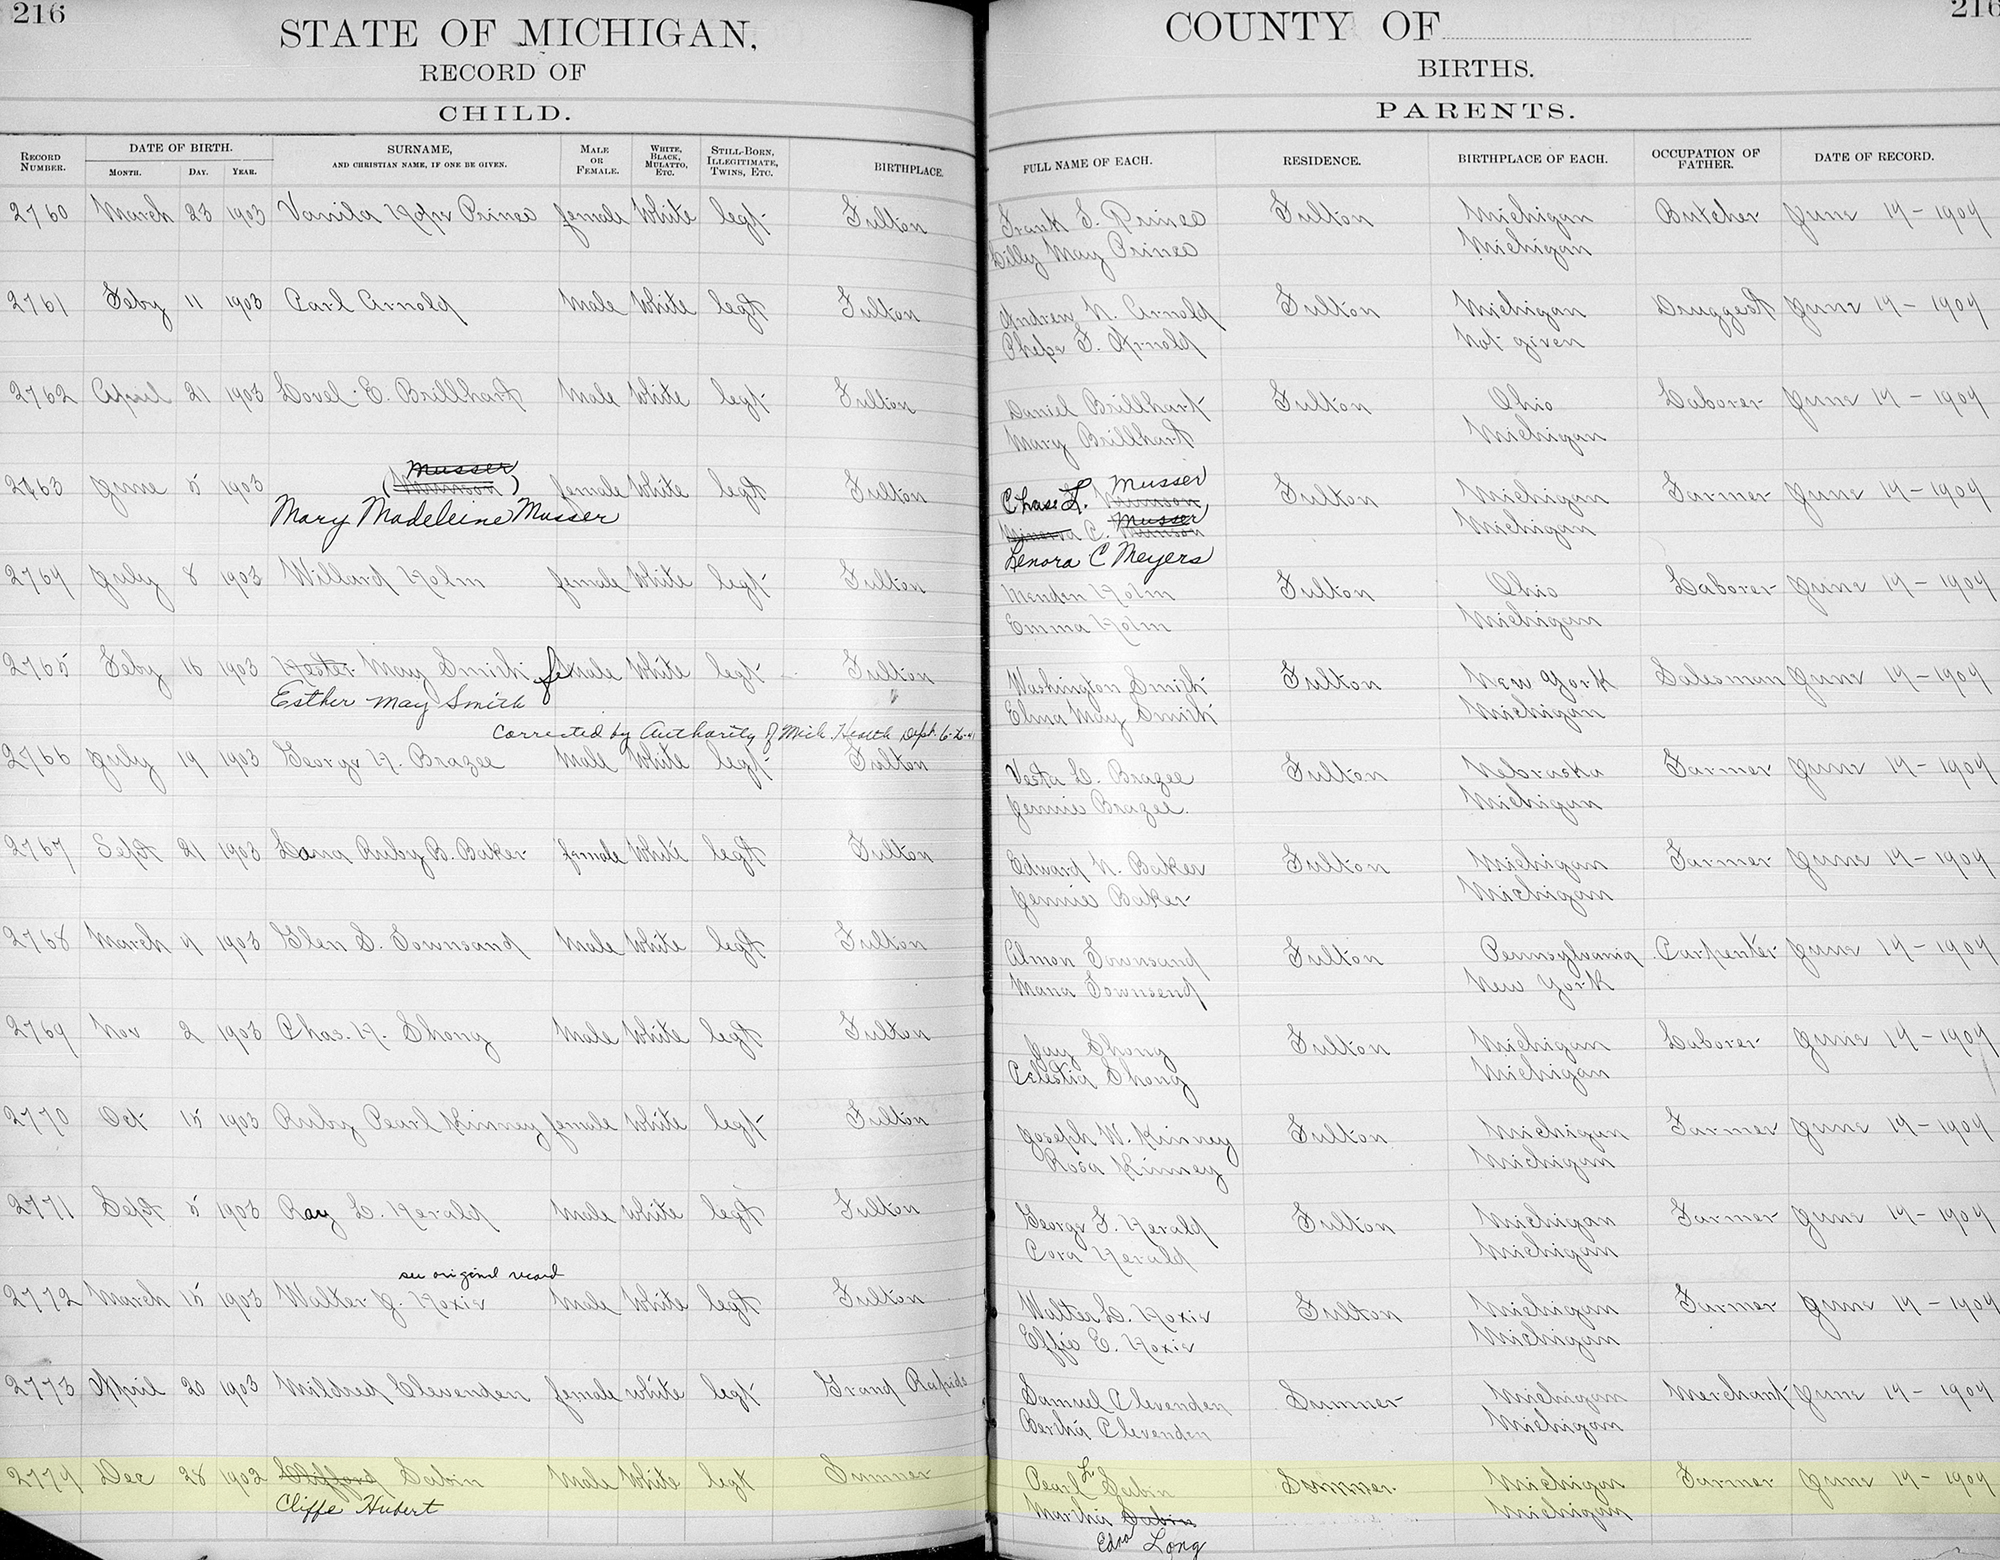 216
STATE OF MICHIGAN,
RECORD OF
CHILD.
COUNTY OF
216
BIRTHS.
PARENTS.
RECORD NUMBER.
DATE OF BIRTH.
MONTH. DAY. YEAR.
SURNAME,
AND CHRISTIAN NAME, IF ONE BE GIVEN.
MALE OR FEMALE.
WHITE, BLACK, MULATTO, ETC.
STILL-BORN, ILLEGITIMATE, TWINS, ETC.
BIRTHPLACE.
FULL NAME OF EACH.
RESIDENCE.
BIRTHPLACE OF EACH.
OCCUPATION OF FATHER.
DATE OF RECORD.
2760 March 23 1903 Vanila Hope Prince female White legt Fulton Frank S. Prince Fulton Michigan Butcher June 14 - 1904
Lilly May Prince Michigan
2761 Feby 11 1903 Carl Arnold Male White legt Fulton Andrew N. Arnold Fulton Michigan Druggest June 14 - 1904
Phebe S. Arnold Not given
2762 April 21 1903 Lovel E. Brillhart Male White legt Fulton Daniel Brillhart Fulton Ohio Laborer June 14 - 1904
Mary Brillhart Michigan
Musser
2763 June 5 1903 (Munson) female White legt Fulton Chase L. Munson Musser Fulton Michigan Farmer June 14 - 1904
Mary Madeleine Musser Minerva C. Munson Musser Michigan
Lenora C Meyers
2764 July 8 1903 Willard Holm female White legt Fulton Menden Holm Fulton Ohio Laborer June 14 - 1904
Emma Holm Michigan
2765 Feby 16 1903 Hester May Smith female White legt Fulton Washington Smith Fulton New York Salesman June 14 - 1904
Esther May Smith Elma May Smith Michigan
Corrected by Authority of Mich Health Dept. 6-26-41
2766 July 19 1903 George H. Brazee Male White legt Fulton Vesta L. Brazee Fulton Nebraska Farmer June 14 - 1904
Jennie Brazee. Michigan
2767 Sept 21 1903 Lena Ruby B. Baker female White legt Fulton Edward N. Baker Fulton Michigan Farmer June 14 - 1904
Jennie Baker Michigan
2768 March 9 1903 Glen S. Townsand Male White legt Fulton Almon Townsand Fulton Pennsylvania Carpenter June 14 - 1904
Mana Townsend New York
2769 Nov 2 1903 Chas. H. Shong Male White legt Fulton Jay Shong Fulton Michigan Laborer June 14 - 1904
Celestia Shong Michigan
2770 Oct 15 1903 Ruby Pearl Kinney female White legt Fulton Joseph W. Kinney Fulton Michigan Farmer June 14 - 1904
Rosa Kinney Michigan
2771 Sept 5 1903 Ray L. Herald Male White legt Fulton George F. Herald Fulton Michigan Farmer June 14 - 1904
Cora Herald Michigan
see original record
2772 March 15 1903 Walter J. Hoxie Male White legt Fulton Walter L. Hoxie Fulton Michigan Farmer June 14 - 1904
Effie E. Hoxie Michigan
2773 April 20 1903 Mildred Clevenden female White legt Grand Rapids Samuel Clevenden Sumner Michigan Merchant June 14 - 1904
Bertha Clevenden Michigan
2774 Dec 28 1902 Clifford Sabin Male White legt Sumner Pearl L Sabin Sumner. Michigan Farmer June 14 - 1904
Cliffe Hubert Martha Sabin Michigan
Edna Long